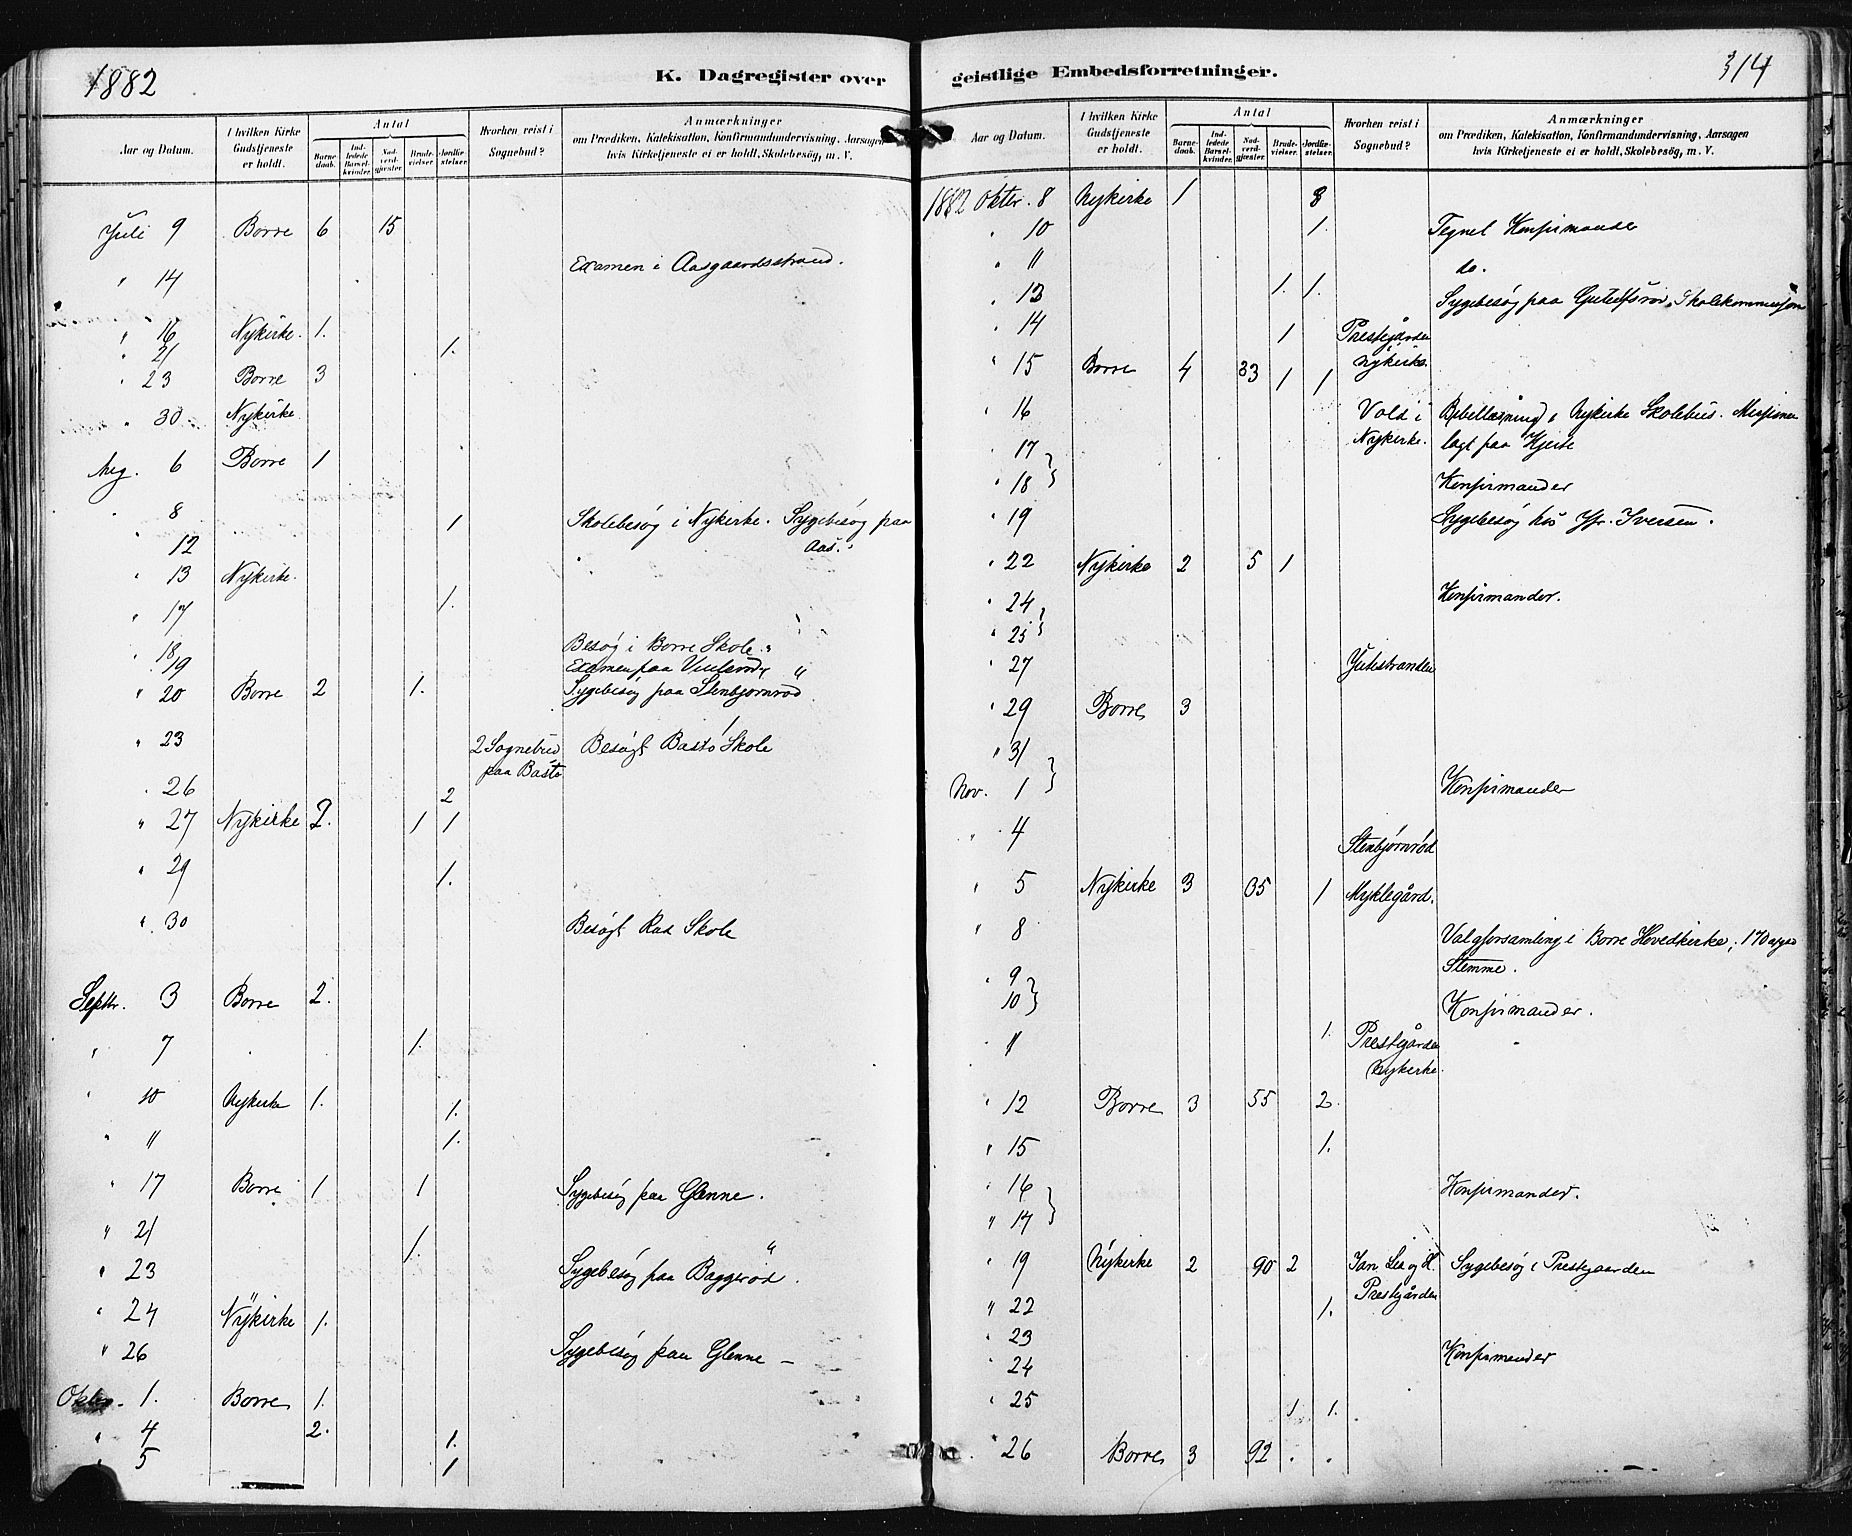 1882
K. Dagregister over
Aar og Datum.
I hvilken Kirke Gudstjeneste er holdt.
Antal
Barnedaab.
Indledede Barselkvinder.
Nadverdgjester.
Brudevielser.
Jordfæstelser.
Hvorhen reist i Sognebud?
Anmærkninger
om Prædiken, Katekisation, Konfirmandundervisning, Aarsagen
hvis Kirketjeneste ei er holdt, Skolebesøg, m. V.
Juli 9 Borre 6 15
" 14 Examen i Aasgaardsstrand.
" 16 Nykirke. 1.
" 21 1.
" 23 Borre 3
" 30 Nykirke
Aug. 6 Borre 1
" 8 1 Skolebesøg i Nykirke. Sygebesøg paa
" 12 Aas.
" 13 Nykirke.
" 17 1.
" 18 Besøg i Borre Skole "
" 19 Examen paa
" 20 Borre 2 1. Sygebesøg paa Stenbjornrød
" 23 2 Sognebud Besøgt Bastø Skole
paa Bastø
" 26 2
" 27 Nykirke 2. 1 1
" 29 1.
" 30 Besøgt Rød Skole
Septbr. 3 Borre 2.
" 7 1.
" 10 Nykirke 1. 1.
" 11 1.
" 17 Borre 1 1 Sygebesøg paa Glenne.
" 21 1
" 23 1. Sygebesøg paa Baggerød.
" 24 Nykirke 1.
" 26 Sygebesøg paa Glenne –
Oktbr. 1. Borre 1.
" 4 2. 1.
" 5 1
geistlige Embedsforretninger.
314
Aar og Datum.
I hvilken Kirke Gudstjeneste er holdt.
Antal
Barnedaab.
Indledede Barselkvinder.
Nadverdgjester.
Brudevielser.
Jordfæstelser.
Hvorhen reist i Sognebud?
Anmærkninger
om Prædiken, Katekisation, Konfirmandundervisning, Aarsagen
hvis Kirketjeneste ei er holdt, Skolebesøg, m. V.
1882 Oktbr. 8 Nykirke 1 3
" 10 1. Tegnet Konfirmander
" 11 do.
" 13 1. 1. Sygebesøg paa Skolekommission
" 14 1 Prestegården
Nykirke.
" 15 Borre 4 33 1 1
" 16 Vold i Bibellæsning i Nykirke Skolehus.
" 17 Nykirke. lagt paa Hjerte
" 18 Konfirmander
" 19 Sygebesøg hos Iversen.
" 22 Nykirke 2 5 1
" 24 Konfirmander.
" 25
" 27
" 29 Borre 3
" 31
Nov. 1 Konfirmander
" 4 Stenbjørnrød
" 5 Nykirke 3 35 1 Myklegård.
" 8 Valgforsamling i Borre Hovedkirke; 170
Stemme.
" 9
10 Konfirmander.
" 11 1. Prestgården
Nykirke.
" 12 Borre 3 55 2.
" 15 1.
" 16 Konfirmander.
" 17
" 19 Nykirke 2 90 2 Sygebesøg i Prestegaarden
Prestgården
" 22 1.
" 23
" 24 Konfirmander
" 25 1 1.
" 26 Borre 3 92 . .